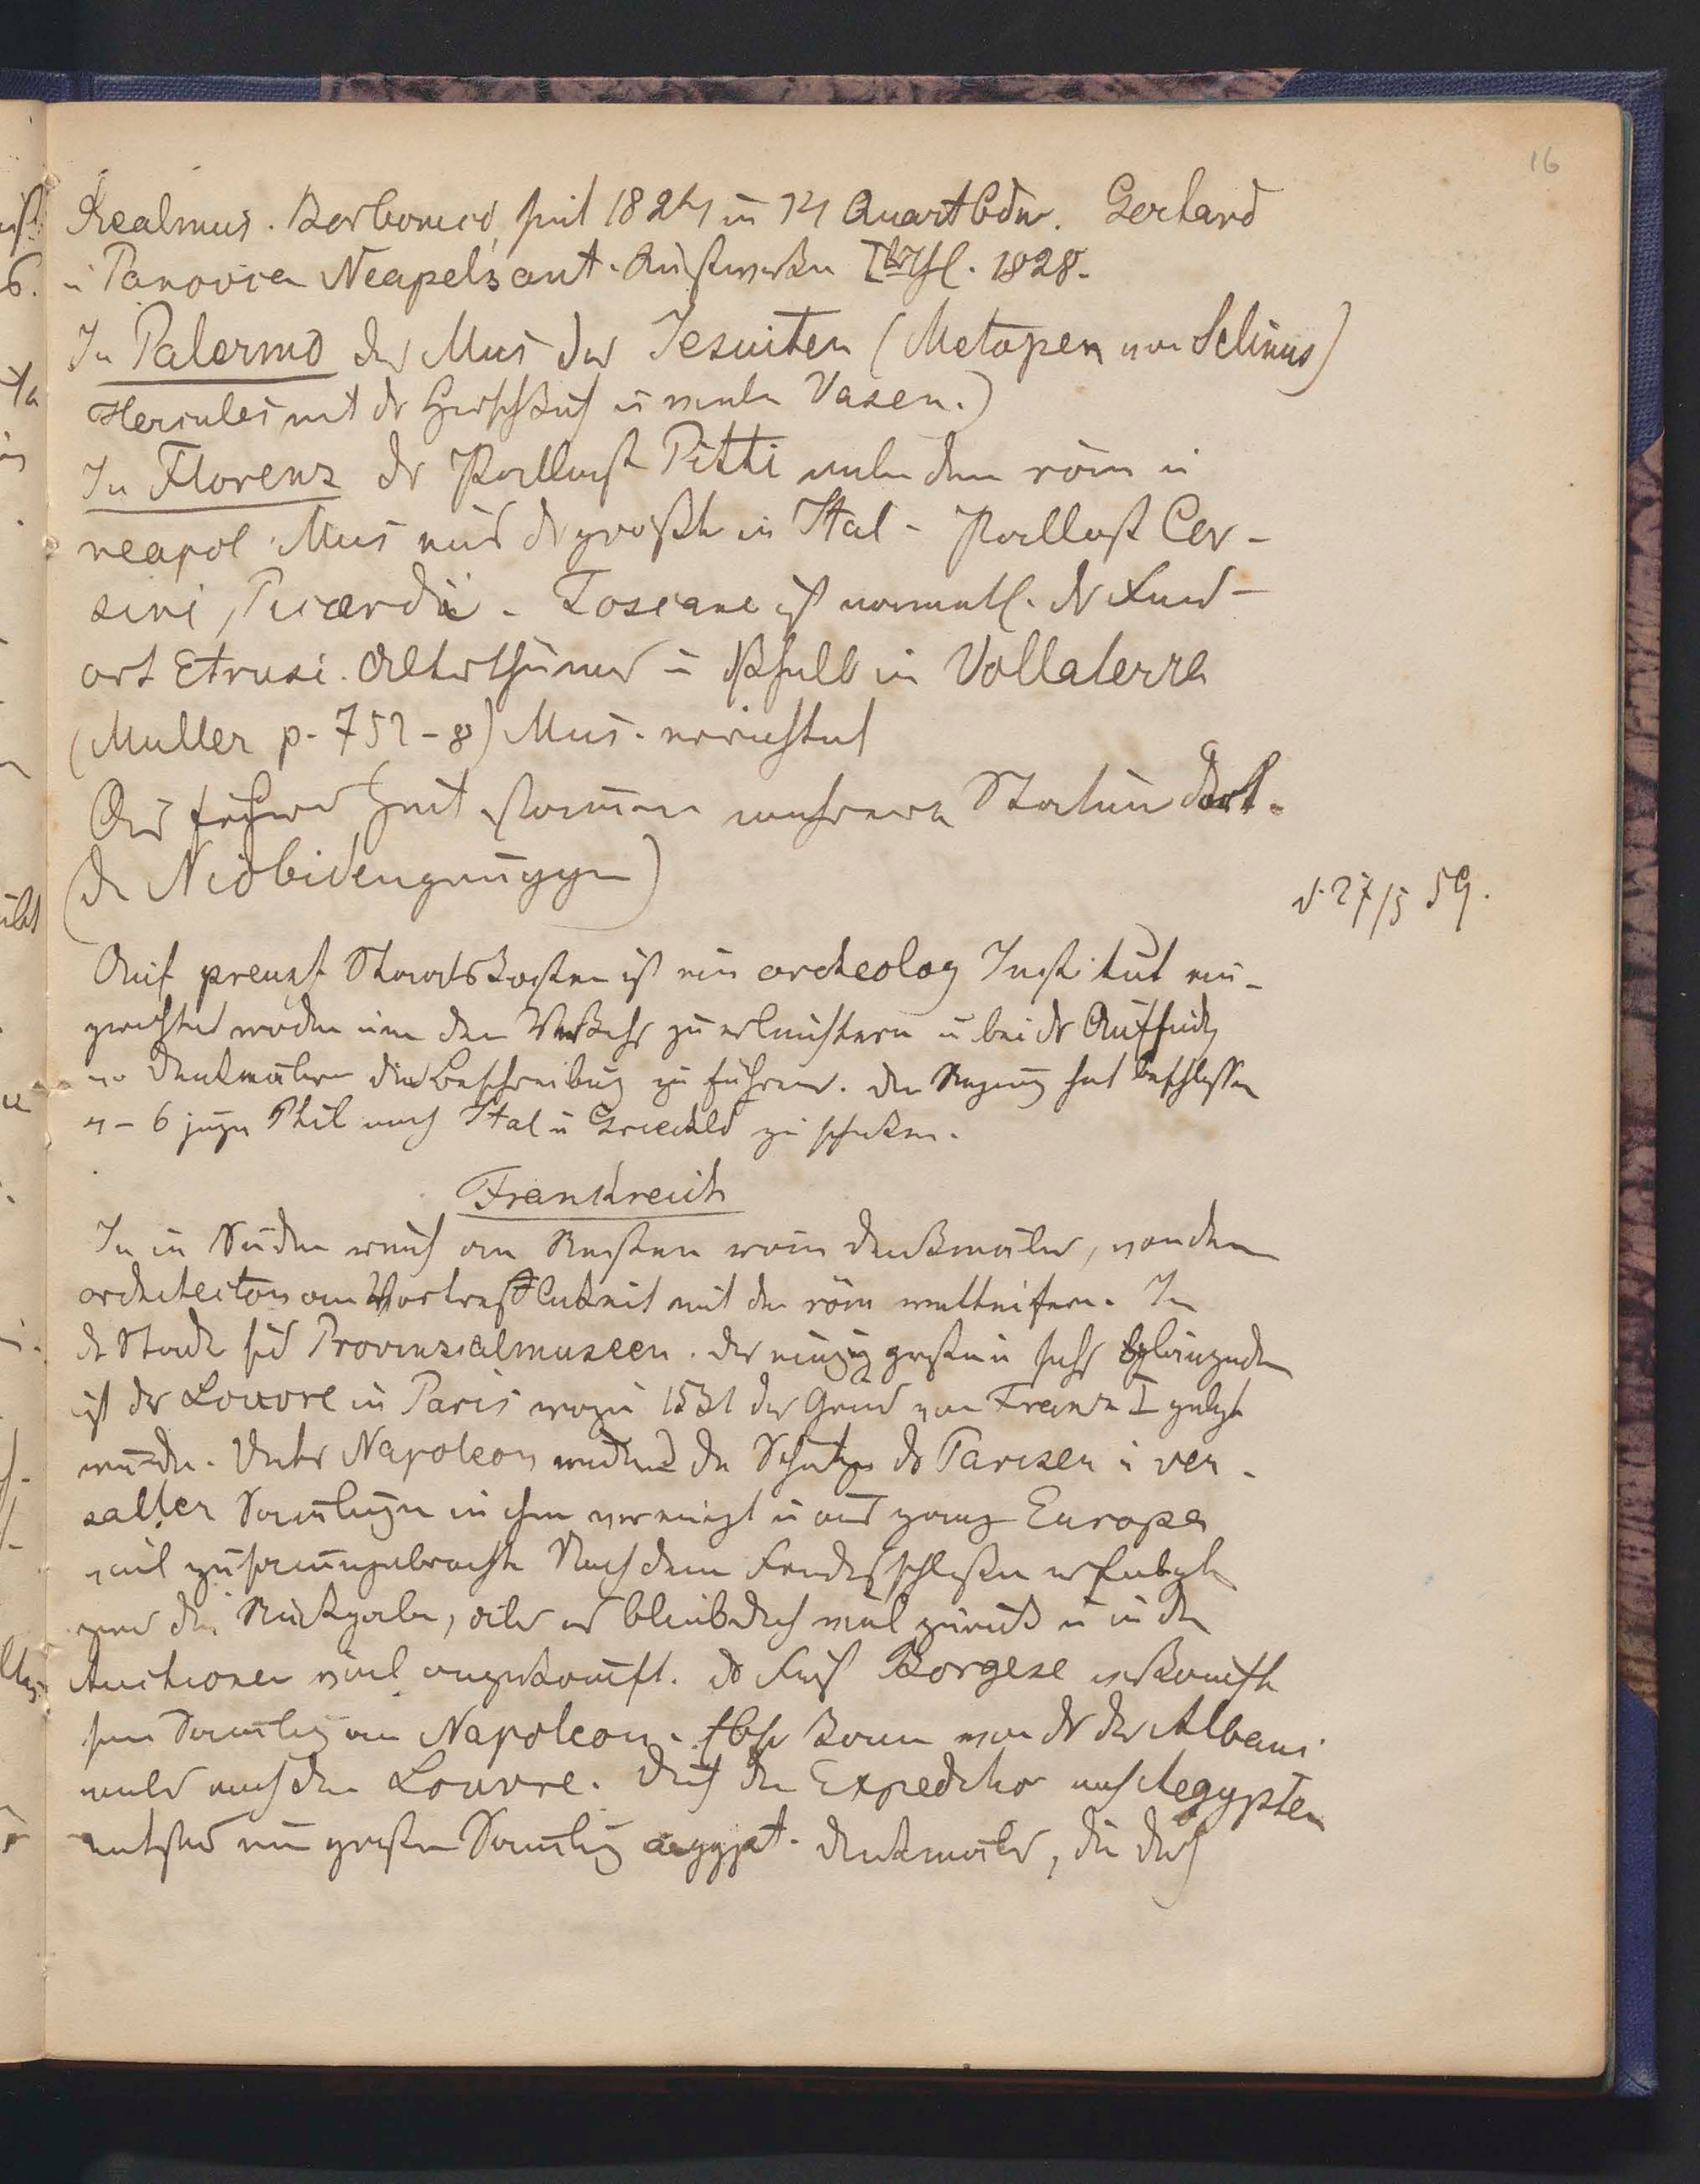 16
Realmus. Borbonico seit 1824 in 14 Quartbdn. Gerhard
u Panovka Neapels ant. Kunstwerken I Thl. 1828.
In Palermo das Mus der Jesuiten (Metopen von Selinus)
Hercules mit dr Hirschkuh u viele Vasen.)
In Florenz dr Pallast Pitti neben dem röm u
neapol Mus eins dr größte in Ital - Pallast Cor-
sini, Ricardi. Toscana ist namentl. dr Fund-
ort Etrusc. Alterthümer u deshalb in Vollaterra
(Muller p. 752-8) Mus. errichtet
Aus früherer Zeit stammen mehrere Statuen dort.
(die Niobidengruppe)
d. 27/5 59.
Auf preuss Staatskosten ist ein archeolog Institut ein-
gerichtet worden um den Verkehr zu erleichtern u bei dr Auffindg
v. Denkmälern die Beschreibung zu führen. Die Regirung hat beschlossen
4-6 junge Phil nach Ital u Griechld zu schicken.
Frankreich
In im Süden reich an Resten röm Denkmäler, von denen
architecton an Vortrefflichkeit mit den röm wetteifern. In
dr Stadt sind Provinzialmuseen. Das einzig große u sehr glänzende
ist der Louvre in Paris wozu 1531 der Grund von Franz I gelegt
wurde. Unter Napoleon wurden die Schätze dr Pariser u ver-
sailler Samlungen in ihm vereinigt u aus ganz Europa
viel zusammengebracht Nach dem Friedensschlusse erfolgte
zwar die Rückgabe, aber es blieb doch viel zurück u in den
Auctionen viel angekauft. Dr Fürst Borgese verkaufte
seine Samlung an Napoleon. Ebso kam von dr der Albani
vieles nach dem Louvre. Durch die Expedition nach Aegypten
entstand eine große Samlung aegypt. Denkmäler, die durch